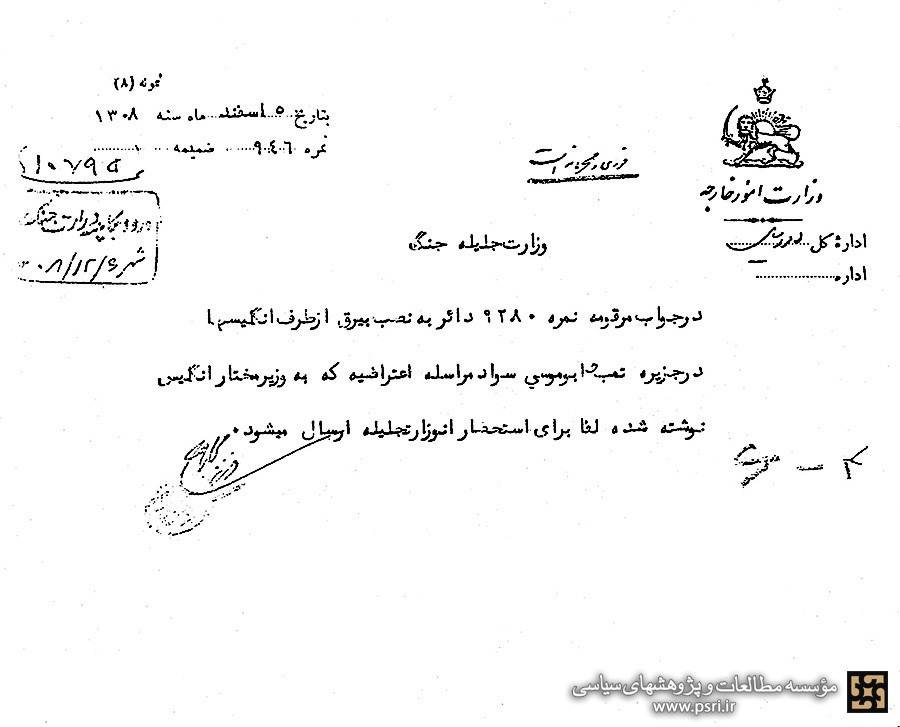 نمونه (۸)
بتاریخ ۵ اسفند ماه سنه ۱۳۰۸
نمره ۹۴۰۶ ضمیمه ۱
۱۰۷۹۵
ورود بکابینه وزارت جنگ
شهر ۰۸/۱۲/۶
فوری و محرمانه است
وزارت امور خارجه
اداره کل
اداره
وزارت جلیله جنگ
در جواب مرقومه نمره ۹۲۸۰ دائر به نصب بیرق از طرف انگلیسها
در جزیره تمب و ابوموسی سواد مراسله اعتراضیه که به وزیر مختار انگلیس
نوشته شده لفا برای استحضار انوزارتجلیله ارسال میشود.
مؤسسه مطالعات و پژوهشهای سیاسی
www.psri.ir